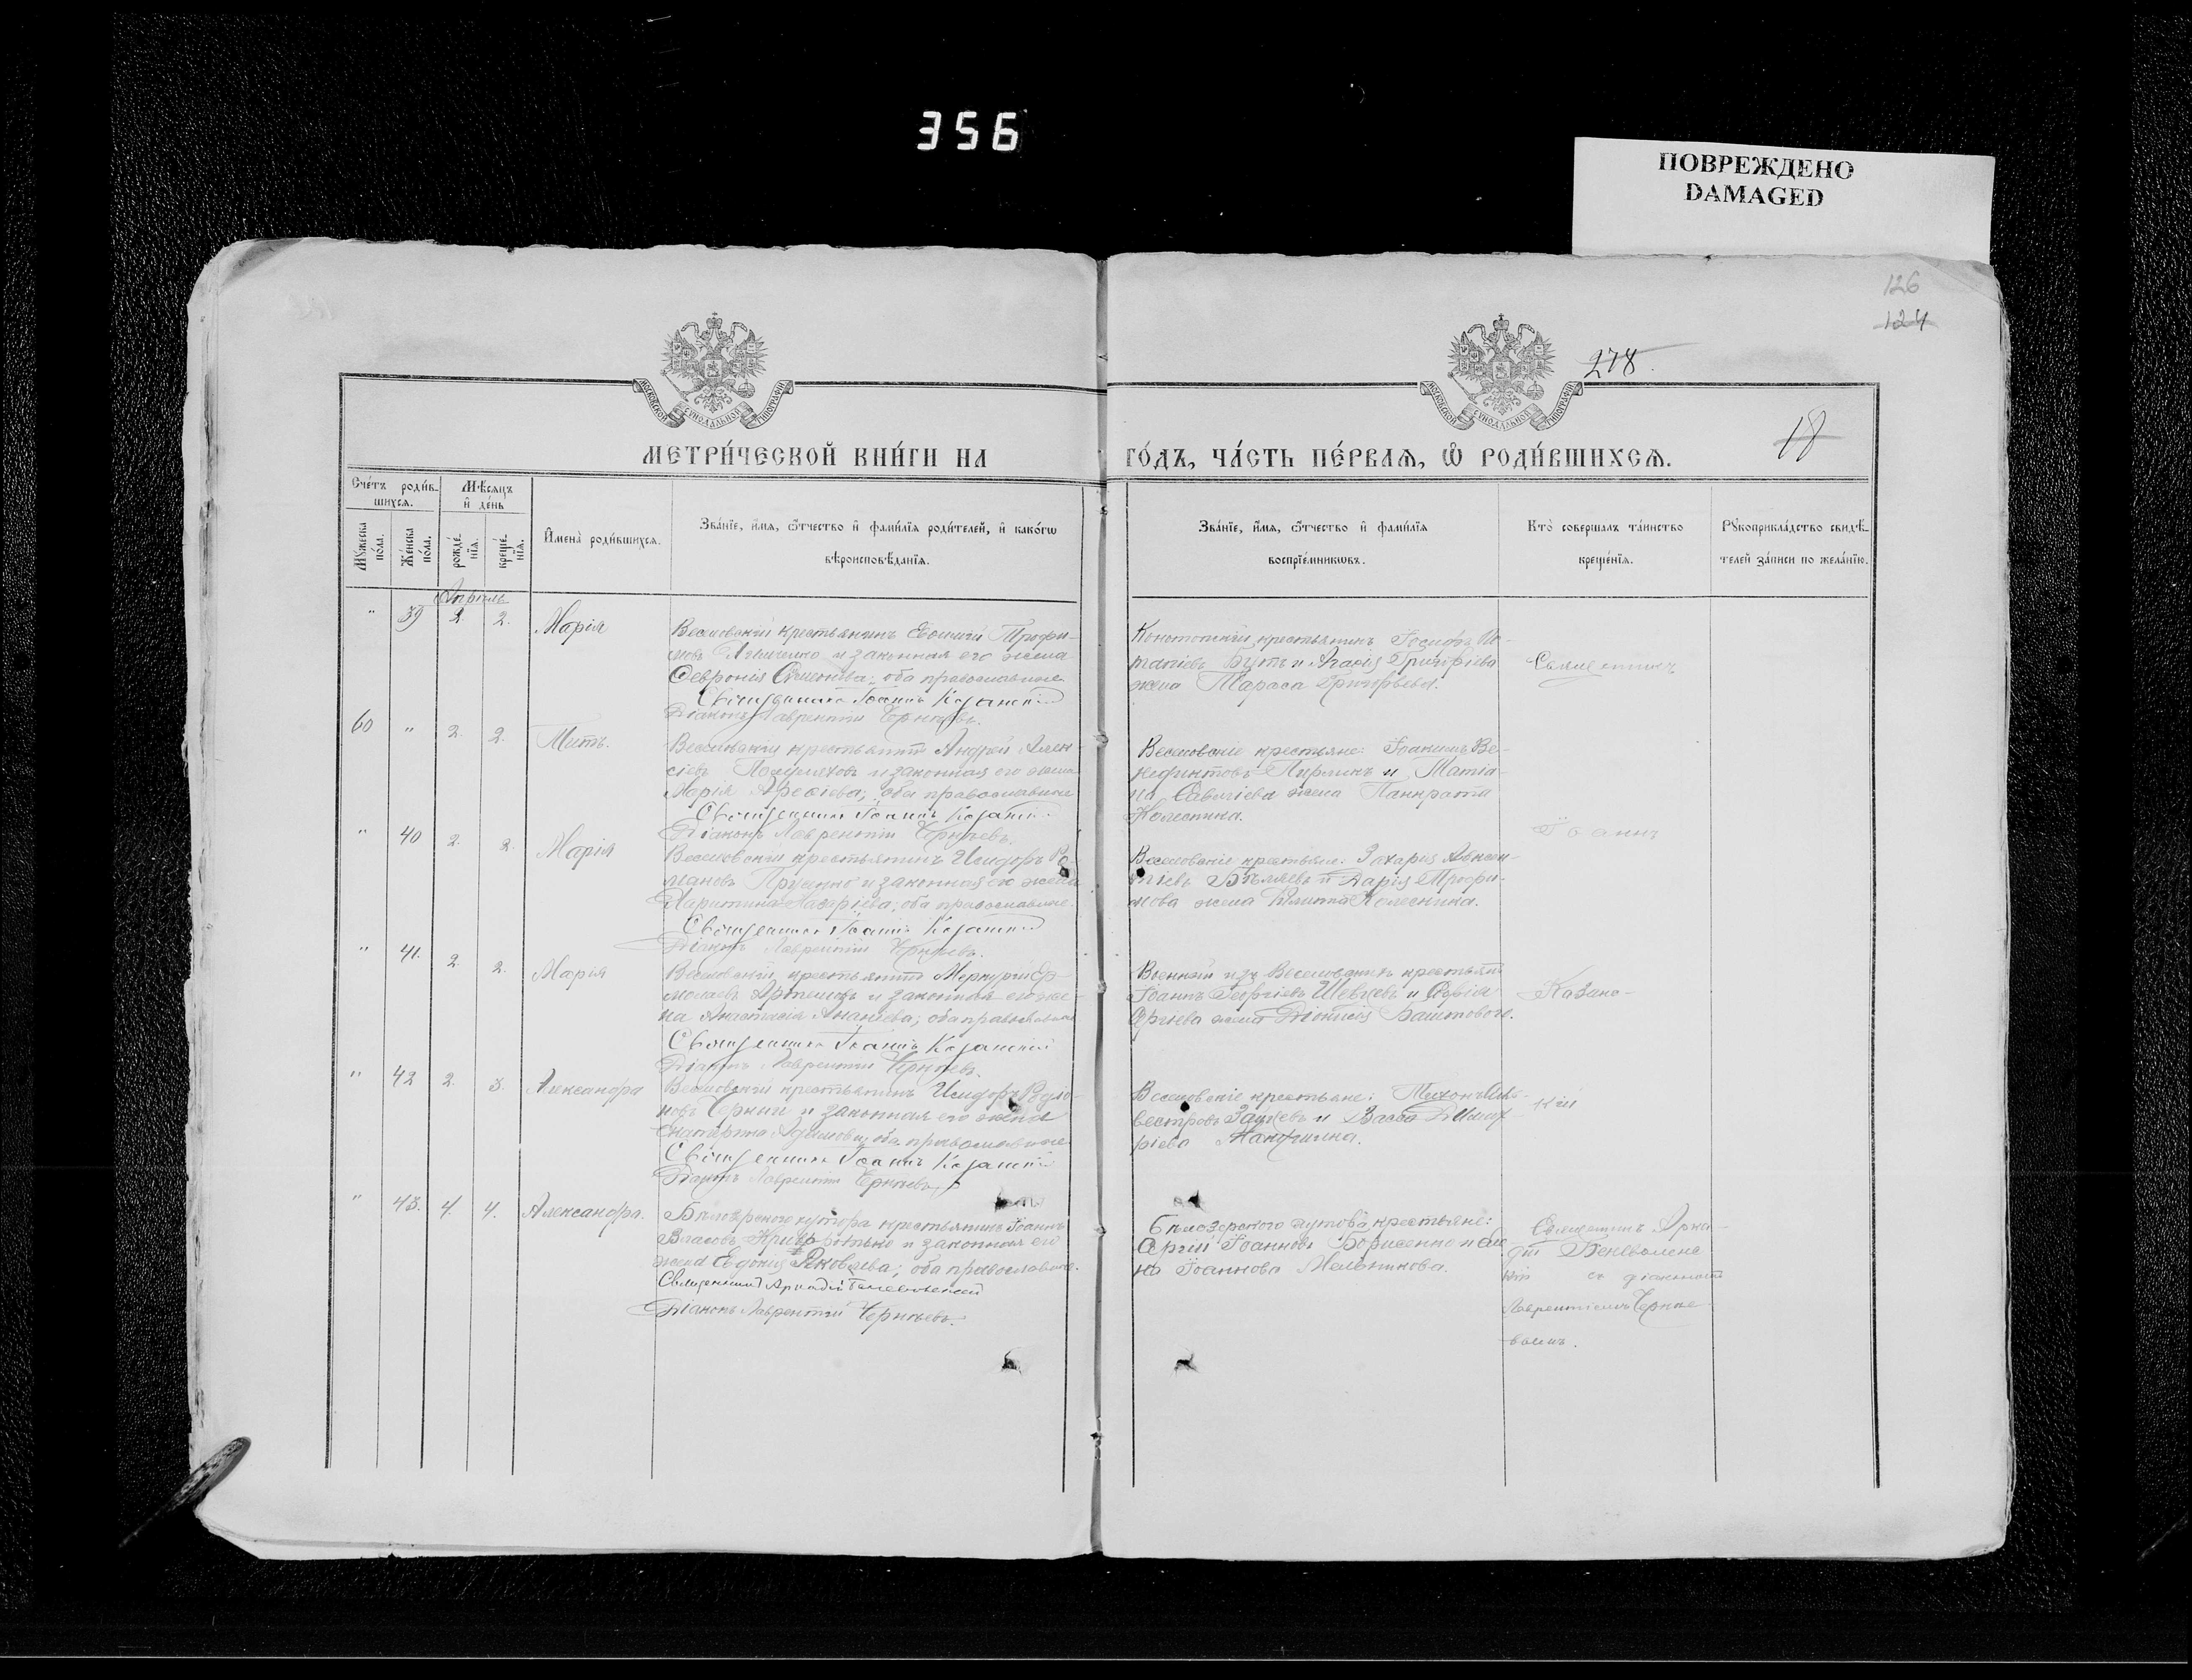 356
ПОВРЕЖДЕНО
DAMAGED
126
124
278.
18
МОСКОВСКОЙ СѴНОДАЛЬНОЙ ТИПОГРАФІИ
МОСКОВСКОЙ СѴНОДАЛЬНОЙ ТИПОГРАФІИ
МЕТРИ́ЧЕСКОЙ КНИ́ГИ НА
ГО́ДЪ, ЧА́СТЬ ПЕ́РВАѦ, Ѡ РОДИ́ВШИХСѦ.
Сче́тъ роди́в-
шихсѧ.
Мѣсѧцъ
и҆ де́нь
Мꙋ́жеска
по́ла.
Же́нска
по́ла.
рожде́-
нїѧ.
креще́-
нїѧ.
И҆мена̀ роди́вшихсѧ.
Зва́нїе, и҆́мѧ, ѻ҆́тчество и҆ фами́лїѧ роди́телей, и҆ како́гѡ
вѣроисповѣ́данїѧ.
Зва́нїе, и҆́мѧ, ѻ҆́тчество и҆ фами́лїѧ
воспрїе́мникѡвъ.
Кто̀ соверша́лъ та́инство
креще́нїѧ.
Рꙋкоприкла́дство свидѣ́-
телей за́писи по жела́нїю.
Апрѣль
" 39 2. 2. Марія
Веселовскій крестьянинъ Евѳимій Трофи-
мовъ и законная его жена
Февронія Симеонова; оба православные
Священникъ Іоаннъ Казанскій
Діаконъ Лаврентій Чернѣевъ.
крестьянинъ Іосифъ По-
таніевъ Бутъ и Агаѳія Григоріева
жена Тараса Григорьева.
Священникъ
60 " 2. 2. Титъ.
Веселовскій крестьянинъ Андрей Алек-
сіевъ и законная его жена
Марія; оба православные
Священникъ Іоаннъ Казанскій
Діаконъ Лаврентій Чернѣевъ.
Веселовскіе крестьяне: Іоакимъ Ве-
недиктовъ и Татіа-
на Савичева жена Панкрата
Колесника.
Іоаннъ
" 40 2. 2. Марія
Веселовскій крестьянинъ Исидоръ Ро-
мановъ и законная его жена
Харитина; оба православные.
Священникъ Іоаннъ Казанскій
Діаконъ Лаврентій Чернѣевъ.
Веселовскіе крестьяне: Захарія Авксен-
тіевъ Бѣляевъ и Дарія Трофи-
мова жена Колесника.
" 41. 2. 2. Марія
Веселовскій крестьянинъ Меркурій Ер-
молаевъ Артемовъ и законная его же-
на Анастасія Ананіева; оба православные
Священникъ Іоаннъ Казанскій
Діаконъ Лаврентій Чернѣевъ.
Военный изъ Веселовскихъ крестьянъ
Іоаннъ Георгіевъ Шевцевъ и Софія
Сергіева жена Діонисія Баштового.
Казанс-
" 42 2. 3. Александра
Веселовскій крестьянинъ Исидоръ Родіо-
новъ и законная его жена
Екатерина; оба православные
Священникъ Іоаннъ Казанскій
Діаконъ Лаврентій Чернѣевъ.
Веселовскіе крестьяне: Тихонъ Силь-
вестровъ и Васса Димит-
ріева
кій
" 43. 4. 4. Александра.
Бѣлозерского хутора крестьянинъ Іоаннъ
Власовъ и законная его
жена Евдокія Яковлева; оба православные.
Священникъ Аркадій
Діаконъ Лаврентій Чернѣевъ.
Бѣлозерского хутора крестьяне:
Сергій Іоанновъ Борисенко и Еле-
на Іоаннова Мельникова.
Священникъ Арка-
дій
кій съ діакономъ
Лаврентіемъ Чернѣе-
вымъ.